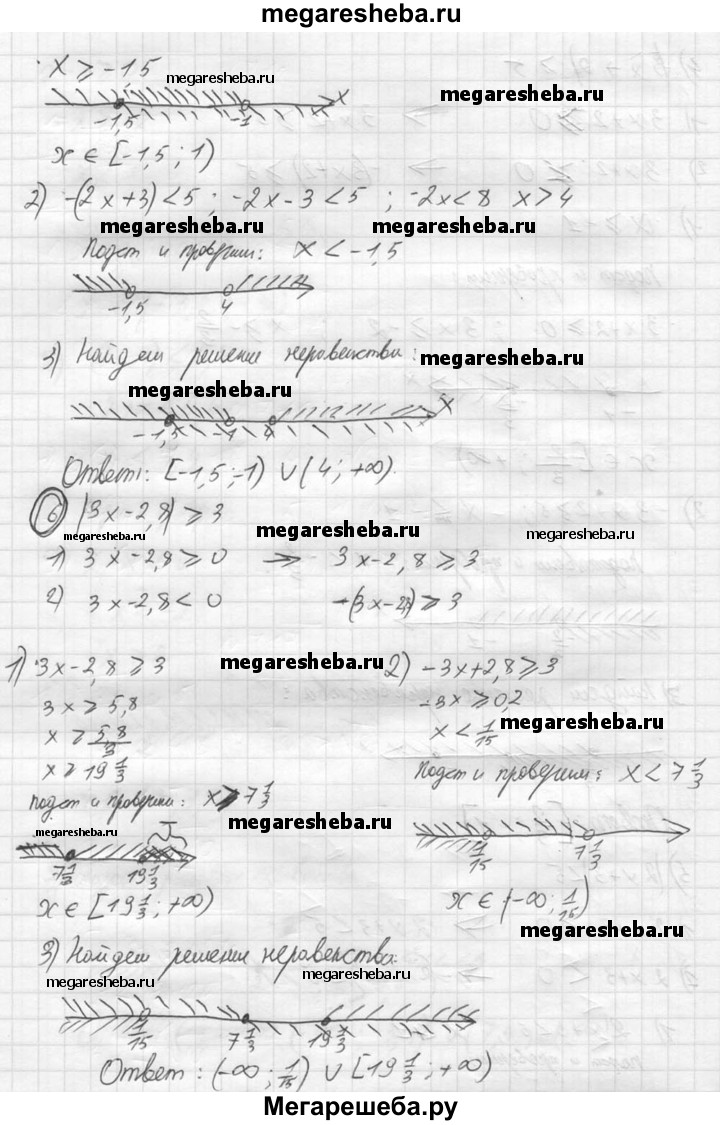 megaresheba.ru
x ≥ -1,5
megaresheba.ru
megaresheba.ru
-1,5 -1 x
x ∈ [-1,5 ; 1)
2) -(2x+3) < 5 ; -2x-3 < 5 ; -2x < 8 x > 4
megaresheba.ru megaresheba.ru
Подст и проверим: x < -1,5
-1,5 4
3) Найдем решение неравенства:
megaresheba.ru
megaresheba.ru
-1,5 -1 4 x
Ответ: [-1,5 ; -1) ∪ (4 ; +∞).
6 |3x-2,8| ≥ 3
megaresheba.ru megaresheba.ru megaresheba.ru
1) 3x-2,8 ≥ 0 → 3x-2,8 ≥ 3
2) 3x-2,8 < 0 -(3x-2,8) ≥ 3
1) 3x-2,8 ≥ 3
megaresheba.ru
2) -3x+2,8 ≥ 3
3x ≥ 5,8
-3x ≥ 0,2
x ≥ 5,8/3
x < 1/15
megaresheba.ru
x ≥ 19 1/3
Подст и проверим: x < 7 1/3
подст и проверим: x ≥ 7 1/3
megaresheba.ru
megaresheba.ru
7 1/3 19 1/3
1/15 7 1/3
x ∈ [19 1/3 ; +∞)
x ∈ (-∞ ; 1/15)
megaresheba.ru
3) Найдем решение неравенства:
megaresheba.ru megaresheba.ru
1/15 7 1/3 19 1/3
Ответ : (-∞ ; 1/15) ∪ [19 1/3 ; +∞)
Мегарешеба.ру